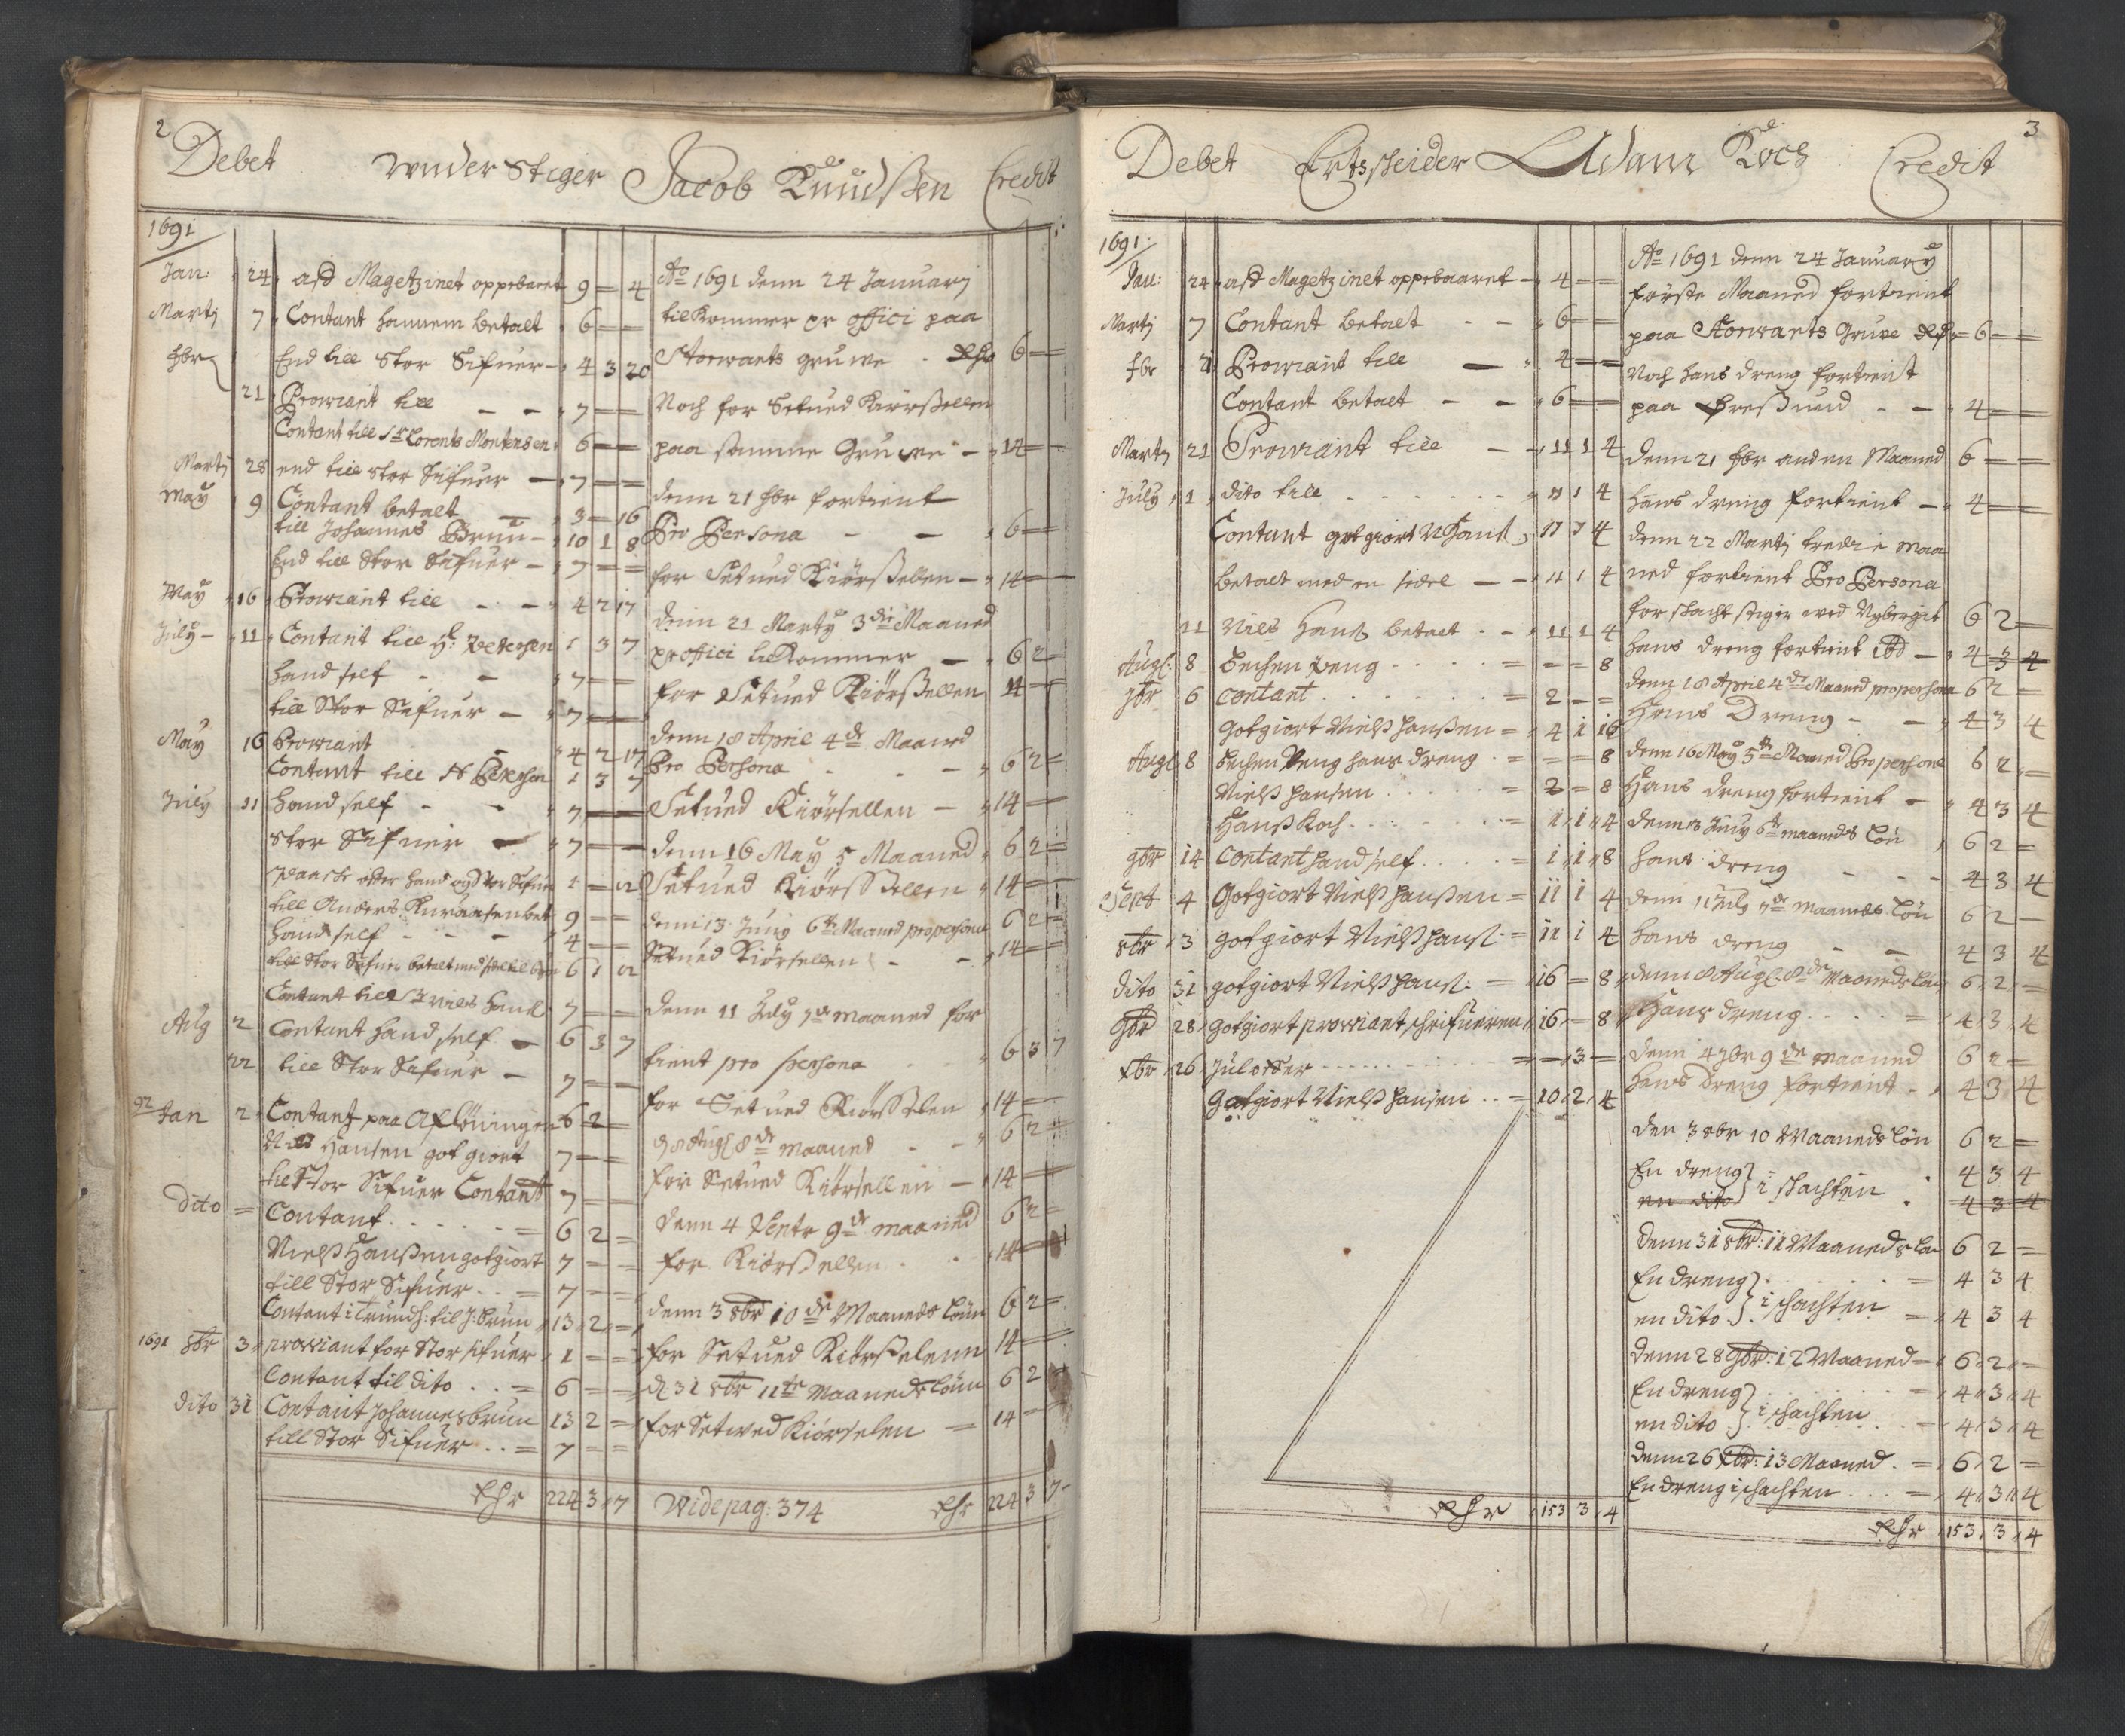 2
Debet under Stiger Jacob Knudssen Credit
1691
Jan: 24 afd Magetzinet oppebaret 9 = 4
Martj 7 Contant hannem betalt 6 = =
End till Stor Sifuer 4 3 20
21 Prowiant till - - 7 = =
Contant till Sr Lorents Montensen 6 = =
Martj 28 end till stor Sifuer 7 = =
May 9 Contant betalt 3 = 16
till Johannes Bruun 10 1 8
End till Stor Sifuer 7 = =
May 16 Prowiant till - - 4 2 17
July 11 Contant till H: Pedersen 1 3 7
hand self - - 7 = =
till Stor Sifuer 7 = =
May 16 Prowiant 4 2 17
Contant till H Petersen 1 3 7
July 11 hand self - - 7 = =
Stor Sifuer 7 = =
1 = 12
till Anders 9 = =
hand self - - - 4 = =
till Stor Sifuer betalt med 6 1 12
Contant till Niels Hans 7 = =
Aug 2 Contant hand self 6 3 7
22 till Stor Sifuer 7 = =
92 Jan 2 Contant paa Aflöningen 6 2 =
Niels Hansen got giort 7 = =
till Stor Sifuer Contant 7 = =
Dito = Contant 6 2 =
Nielss Hanssen gotgiort 7 = =
till Stor Sifuer 7 = =
Contant i Trundh: til J: brun 13 2 =
1691 8br 3 prowiant for Stor sifuer 1 = =
Contant til dito 6 = =
dito 31 Contant Johannes brun 13 2 =
till Stor Sifuer 7 = =
Rhr 224 3 7
Ao 1691 denn 24 Januarj
tilkommer pr offici paa
Storwarts gruwe Rhr 6 = =
Noch for Setued Kiörssellen
paa samme Gruwe 14 = =
denn 21 fbr fortient
Pro Persona - - 6 = =
for Setued Kiörssellen 14 = =
denn 21 Marty 3die Maaned
pr offici tilkommer 6 2 =
for Setued Kiörssellen 14 = =
denn 18 April 4de Maaned
Pro Persona - - - 6 2 =
Setued Kiörsellen 14 = =
denn 16 May 5 Maaned 6 2 =
Setued Kiörssellen 14 = =
denn 13 Juny 6te Maaned pro persona 6 2 =
Setued Kiörsellen 14 = =
denn 11 July 7de Maaned for
tient pro persona 6 3 7
for Setued Kiörsselen 14 = =
d 8 Augs 8de maaned 6 2 =
for Setued Kiörsellen 14 = =
denn 4 Septr 9de maaned 6 2 =
for Kiörssellen 14 = =
denn 3 8br 10de Maaneds lönn 6 2 =
for Setued Kiörsselenn 14 = =
d 31 8br 11te Maaneds lönn 6 2 =
for Setwed Kiörselen 14 = =
Wide pag: 374 Rhr 224 3 7
3
Debet Ertsscheider Adam Koch Credit
1691
Jan: 24 afd Magetzinet oppebaaret 4 = =
Martj 7 Contant betalt - - 6 = =
fbr 21 Prowiant till 4 = =
Contant betalt - - 6 = =
Martj 21 Prowiant till 11 1 4
July 1 dito till 11 1 4
Contant gotgiort N Hans 11 1 4
betalt med en sedel 11 1 4
11 Niels Hans betalt 11 1 4
Augs: 8 Bechen Peng = = 8
7br 6 contant 2 = =
gotgiort Nielss Hanssen 4 1 16
Augs 8 bechen Peng hans dreng = = 8
Nielss Hansen 2 = 8
Hanss Koch 1 1 4
9br 14 contant hand self 1 1 8
Sept 4 Gotgiort Nielss Hanssen 11 1 4
8br 3 gotgiort Nielss Hans 11 1 4
dito 31 gotgiort Nielss Hans: 16 = 8
9br 28 gotgiort prowiantschrifueren 16 = 8
Xbr 26 Juloffer = 3 =
gotgiort Nielss Hansen 10 2 4
Rhr 153 3 4
Ao 1691 denn 24 January
förste Maaned fortient
paa Storwarts Gruve Rhr 6 = =
Noch hans dreng fortient
paa - - 4 = =
denn 21 fbr anden Maaned 6 = =
hans dreng fortient 4 = =
denn 22 Martj tredie Maa
ned fortient Pro Persona
for schacht stiger wed Nybergit 6 2 =
hans dreng fortient ibd 4 3 4
denn 18 April 4de Maaned pro persona 6 2 =
Hans Dreng - - 4 3 4
denn 16 May 5te Maaned Pro persona 6 2 =
Hans dreng fortient 4 3 4
denn 13 Juny 6te maaneds lön 6 2 =
hans dreng - - - 4 3 4
denn 11 July 7de maaneds lön 6 2 =
hans dreng - - 4 3 4
denn 8 Augs: 8de Maaneds lön 6 2 =
Hans dreng 4 3 4
denn 4 7br 9de maaned 6 2 =
hans dreng fortient 4 3 4
den 3 8br 10 Maaneds lön 6 2 =
En dreng } i schachten 4 3 4
en dito 4 3 4
denn 31 8br: 11 Maaneds lön 6 2 =
En dreng } i schachten 4 3 4
en dito 4 3 4
denn 28 9br: 12 Maaned 6 2 =
En dreng } i schachten 4 3 4
en dito 4 3 4
denn 26 Xbr: 13 Maaned 6 2 =
En dreng i schachten 4 3 4
Rhr 153 3 4